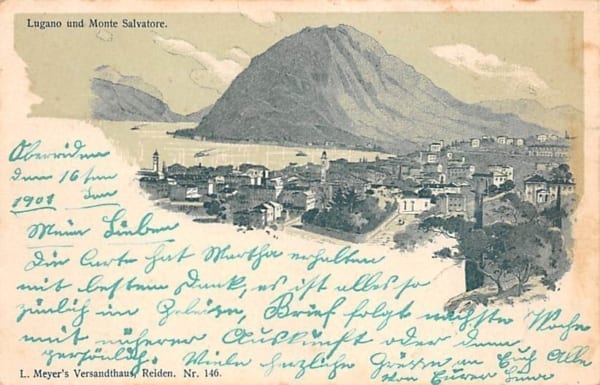 Lugano und Monte Salvatore.
Oberrieden
dem 16 Jan
1901
Meine Lieben
Die Carte hat Martha erhalten
mit bestem Dank, es ist alles so
ziemlich im Brief folgt nächste Woche
mit näherer Auskunft oder dann
persönlich. Viele herzliche Grüsse an Euch Alle
von Eurer
L. Meyer's Versandthaus, Reiden. Nr. 146.